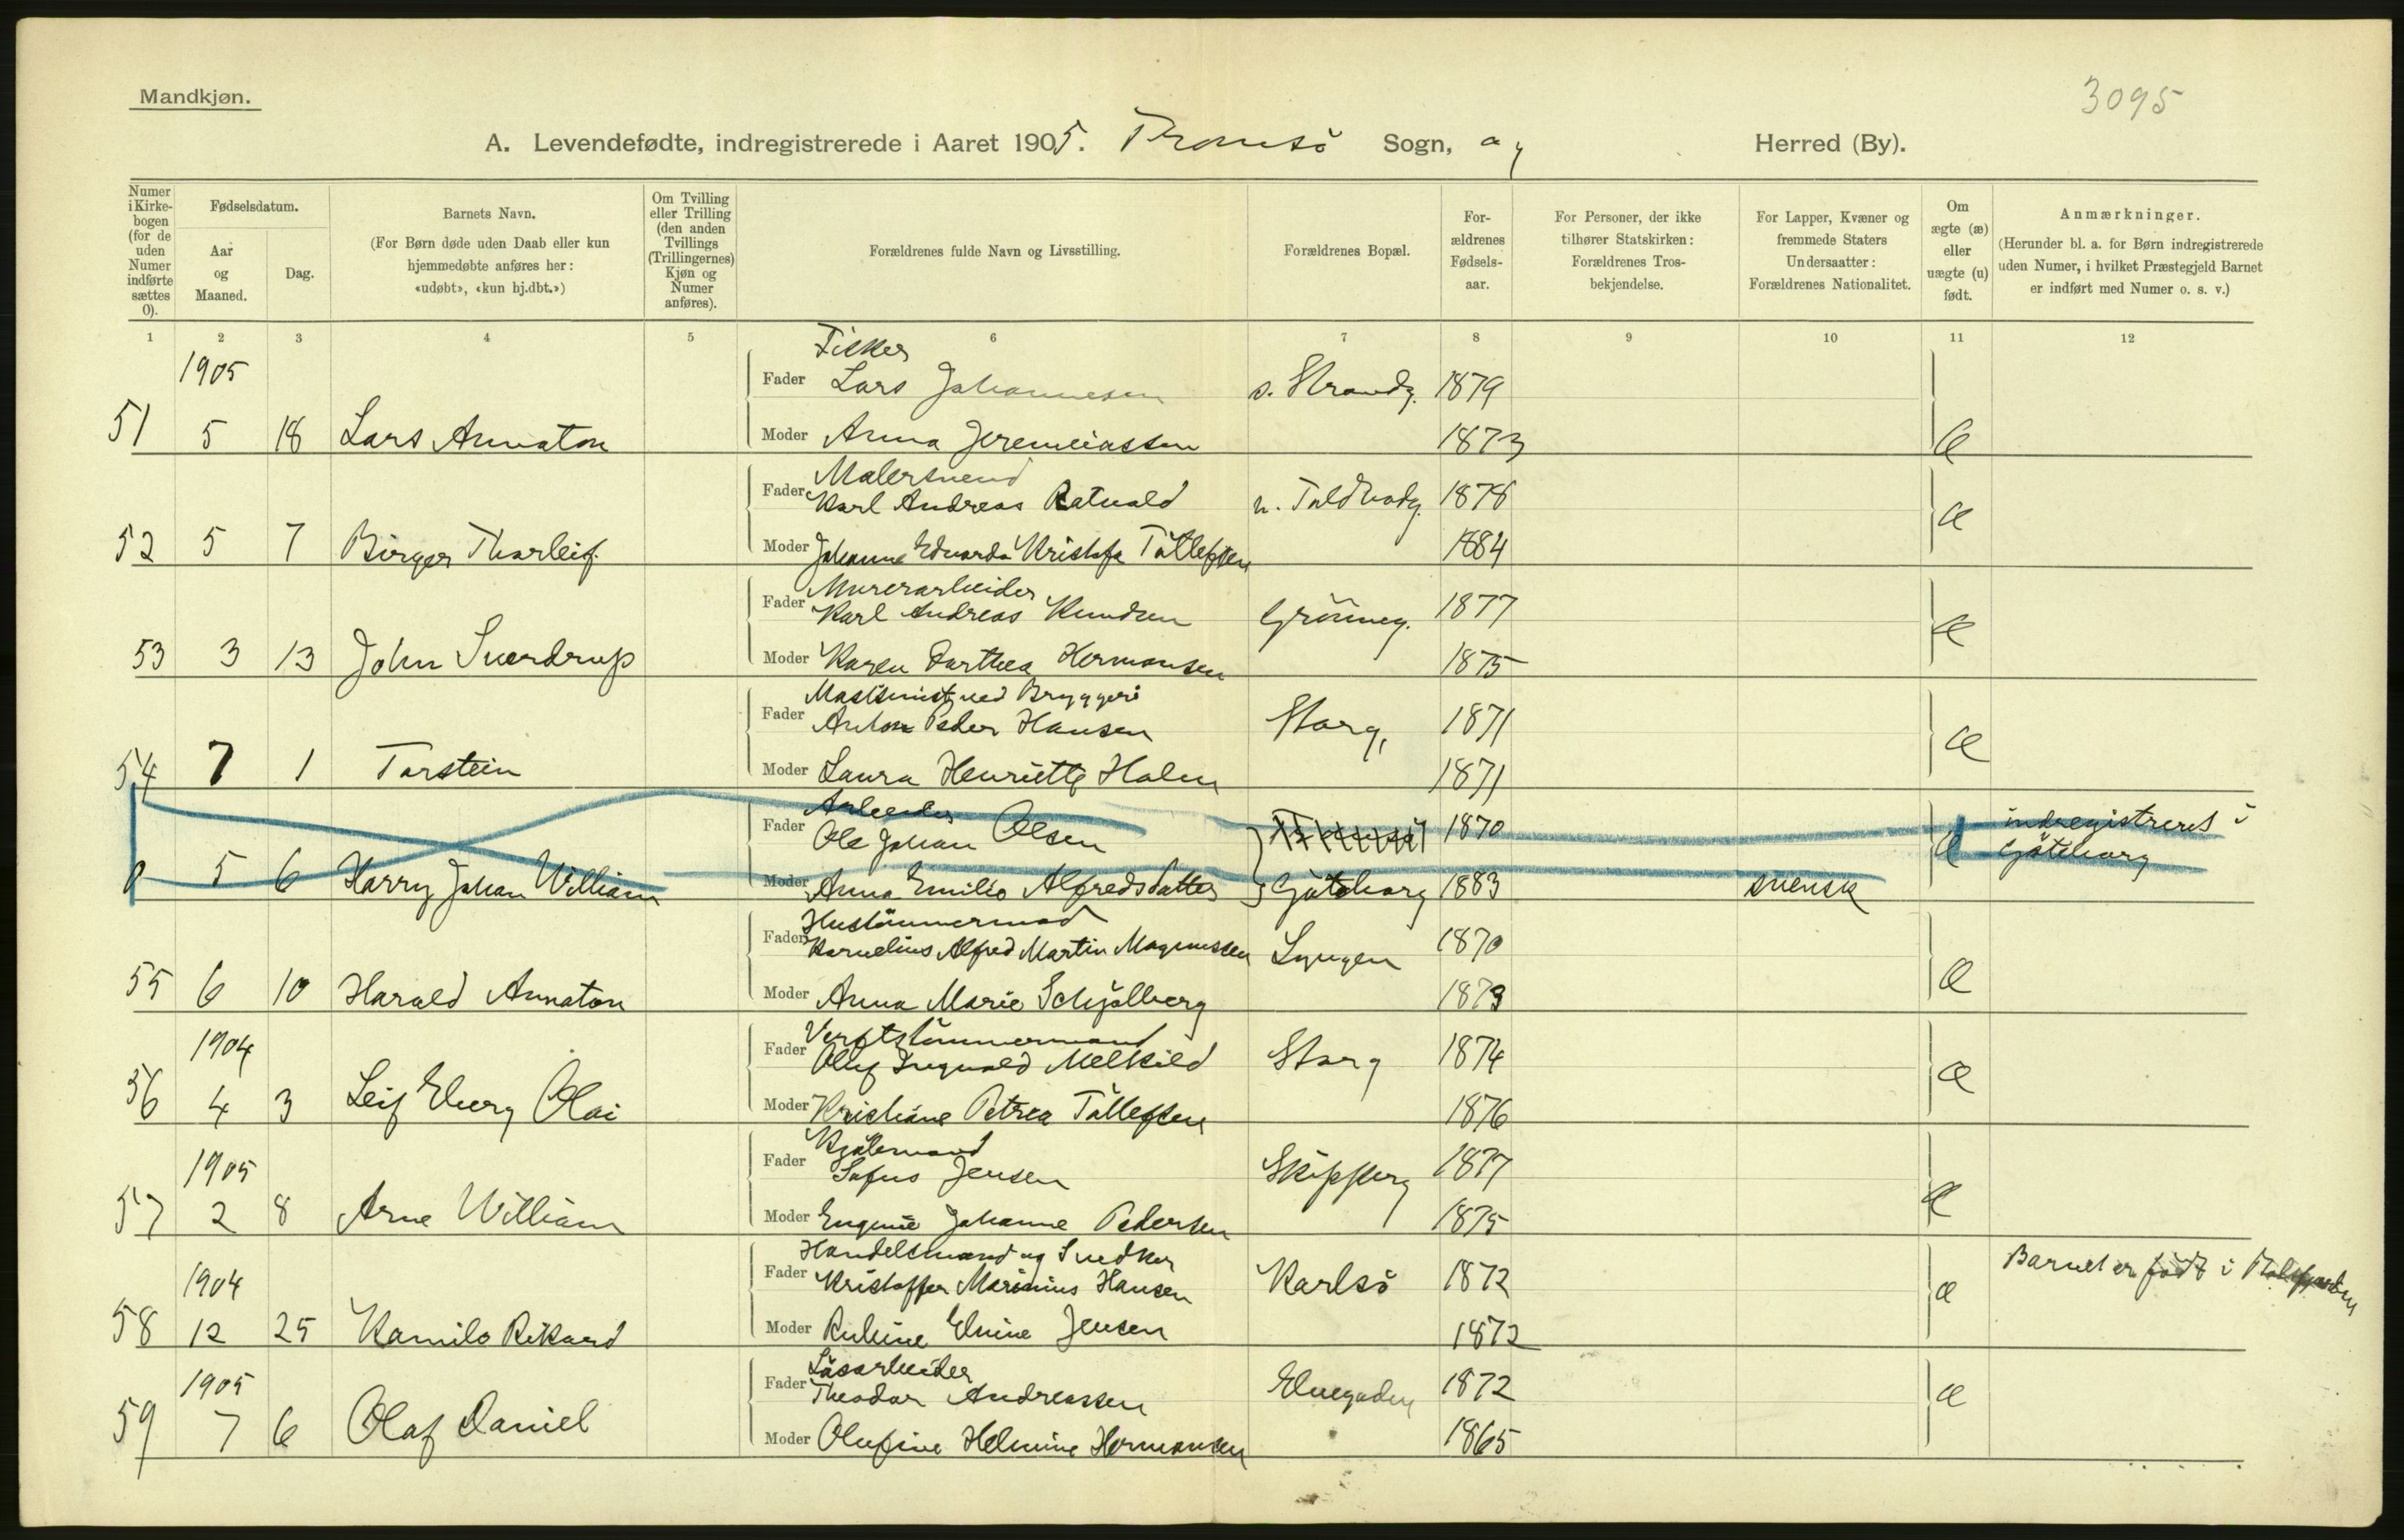 Mandkjøn.
3095
A. Levendefødte, indregistrerede i Aaret 1905. Tromsö Sogn, og Herred (By).
Numer i Kirke-bogen (for de uden Numer indførte sættes 0).
Fødselsdatum.
Aar og Maaned.
Dag.
Barnets Navn.
(For Børn døde uden Daab eller kun hjemmedøbte anføres her: «udøbt», «kun hj.dbt.»)
Om Tvilling eller Trilling (den anden Tvillings (Trillingernes) Kjøn og Numer anføres).
Forældrenes fulde Navn og Livsstilling.
Forældrenes Bopæl.
For-ældrenes Fødsels-aar.
For Personer, der ikke tilhører Statskirken: Forældrenes Tros-bekjendelse.
For Lapper, Kvæner og fremmede Staters Undersaatter: Forældrenes Nationalitet.
Om ægte (æ) eller uægte (u) født.
Anmærkninger.
(Herunder bl. a. for Børn indregistrerede uden Numer, i hvilket Præstegjeld Barnet er indført med Numer o. s. v.)
1 2 3 4 5 6 7 8 9 10 11 12
1905 Fisker
Fader Lars Johannesen s. Strandg. 1879
51 5 18 Lars Annaton Moder Anna Jeremiassen 1873 æ
Malersvend
Fader Karl Andreas Ratvald n. Toldbodg. 1878 æ
52 5 7 Birger Thorleif Moder Johanne Edvarda Kristofa Tollefsen 1884
Murerarbeider
Fader Karl Andreas Knudsen Grönneg. 1877 æ
53 3 13 John Sverdrup Moder Karen Dorthea Hermansen 1875
Maskinist ved Bryggeri
Fader Anton Peder Hansen Storg. 1871 æ
54 7 1 Torstein Moder Laura Henriette Holm 1871
Arbeider
Fader Ole Johan Olsen 1870 æ indregistreret i Göteborg
0 5 6 Harry Johan William Moder Anna Emilie Alfredsdatter Göteborg 1883 svensk
Hustömmermand
Fader Kornelius Alfred Martin Magnussen Lyngen 1870 æ
55 6 10 Harald Annaton Moder Anna Marie Schjölberg 1873
1904 Verftstömmermand
Fader Oluf Ingvald Melkild Storg 1874 æ
56 4 3 Leif Eberg Olai Moder Kristiane Petrea Tollefsen 1876
1905 Kjölemand
Fader Sofus Jensen Skipperg 1877 æ
57 2 8 Arne William Moder Eugenie Johanne Pedersen 1875
Handelsmand og Snedker
1904 Fader Kristoffer Marinius Hansen Karlsö 1872 æ Barnet er födt i
58 12 25 Kamilo Rikard Moder Elvine Jensen 1872
Lösarbeider
1905 Fader Theodor Andreassen Elvegaden 1872 æ
59 7 6 Olaf Daniel Moder Olufine Helmine Hermansen 1865